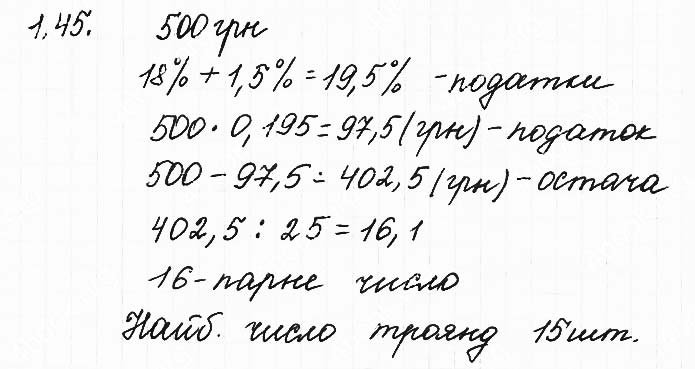 1.45. 500 грн
18% + 1,5% = 19,5% - податки
500 · 0,195 = 97,5 (грн) - податок
500 - 97,5 = 402,5 (грн) - остача
402,5 : 25 = 16,1
16 - парне число
Найб. число троянд 15 шт.